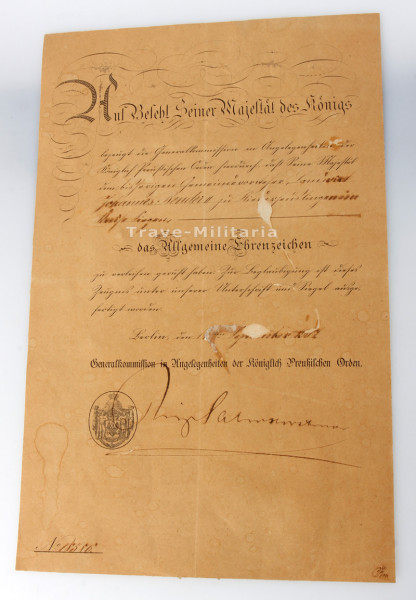 Auf Befehl Seiner Majestät des Königs
bezeugt die Generalkommission in Angelegenheiten der
Königlich Preußischen Orden hierdurch, daß Seine Majestät
dem bisherigen Gemeindevorsteher, Landwirt
Johannes zu
Kreis Siegen,
Trave-Militaria
das Allgemeine Ehrenzeichen
zu verleihen geruht haben. Zur Beglaubigung ist dieses
Zeugnis unter unserer Unterschrift und Siegel ausge-
fertigt worden.
Berlin, den
Generalkommission in Angelegenheiten der Königlich Preußischen Orden.